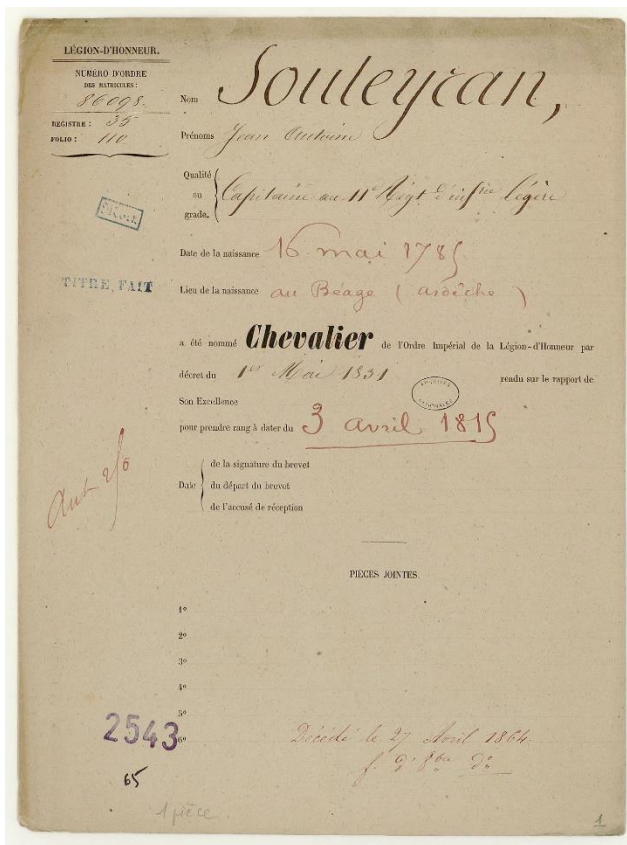 LÉGION-D'HONNEUR.
NUMÉRO D'ORDRE
DES MATRICULES :
86098.
REGISTRE : 35
FOLIO : 110
Nom Souleyran,
Prénoms Jean Antoine
Qualité
ou
grade. Capitaine au 11e Régt d'infrie légère
Date de la naissance 16 mai 1785
Lieu de la naissance au Béage (ardèche)
TITRE FAIT
a été nommé Chevalier de l'Ordre Impérial de la Légion-d'Honneur par
décret du 1er Mai 1831 rendu sur le rapport de
Son Excellence
pour prendre rang à dater du 3 avril 1815
Date
de la signature du brevet
du départ du brevet
de l'accusé de réception
PIÈCES JOINTES.
1º
2º
3º
4º
5º
6º
2543
65
Décédé le 27 Avril 1864.
1 pièce
1